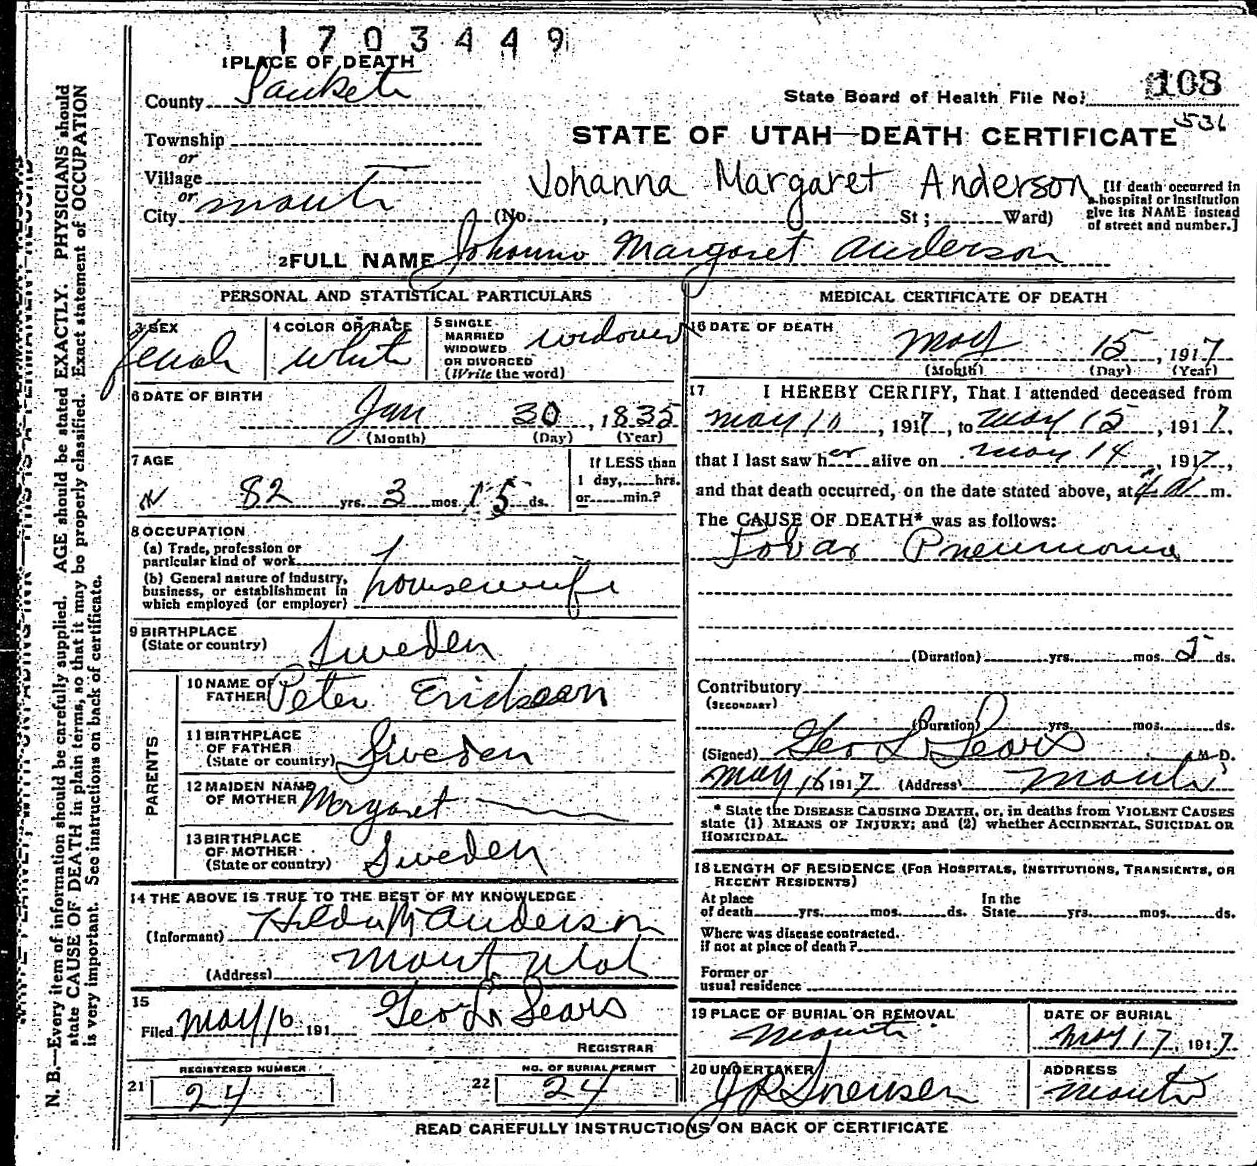 1703449
1 PLACE OF DEATH
County Sanpete
State Board of Health File No. 108
536
STATE OF UTAH—DEATH CERTIFICATE
Township
or
Village
or
City Manti (No. , St; Ward)
Johanna Margaret Anderson
[If death occurred in a hospital or institution give its NAME instead of street and number.]
2 FULL NAME Johanna Margaret Anderson
PERSONAL AND STATISTICAL PARTICULARS
3 SEX female
4 COLOR OR RACE white
5 SINGLE MARRIED WIDOWED OR DIVORCED (Write the word) widower
6 DATE OF BIRTH Jan 30, 1835
(Month) (Day) (Year)
7 AGE 82 yrs. 3 mos. 15 ds.
If LESS than 1 day, hrs. or min.?
8 OCCUPATION
(a) Trade, profession or particular kind of work
(b) General nature of industry, business, or establishment in which employed (or employer) housewife
9 BIRTHPLACE (State or country) Sweden
PARENTS
10 NAME OF FATHER Peter Erickson
11 BIRTHPLACE OF FATHER (State or country) Sweden
12 MAIDEN NAME OF MOTHER Margaret —
13 BIRTHPLACE OF MOTHER (State or country) Sweden
14 THE ABOVE IS TRUE TO THE BEST OF MY KNOWLEDGE
(Informant) Hilda M Anderson
(Address) Manti Utah
15
Filed May 16 191 Geo L Sears
REGISTRAR
21 REGISTERED NUMBER 24
22 NO. OF BURIAL PERMIT 24
MEDICAL CERTIFICATE OF DEATH
16 DATE OF DEATH
May 15, 1917
(Month) (Day) (Year)
17 I HEREBY CERTIFY, That I attended deceased from
May 10, 1917, to May 15, 1917,
that I last saw her alive on May 14, 1917,
and that death occurred, on the date stated above, at 4 a m.
The CAUSE OF DEATH* was as follows:
Lobar Pneumonia
(Duration) yrs. mos. 5 ds.
Contributory
(SECONDARY)
(Duration) yrs. mos. ds.
(Signed) Geo L Sears M D.
May 16 1917 (Address) Manti
* State the DISEASE CAUSING DEATH, or, in deaths from VIOLENT CAUSES
state (1) MEANS OF INJURY; and (2) whether ACCIDENTAL, SUICIDAL OR
HOMICIDAL.
18 LENGTH OF RESIDENCE (FOR HOSPITALS, INSTITUTIONS, TRANSIENTS, OR
RECENT RESIDENTS)
At place of death yrs. mos. ds. In the State yrs. mos. ds.
Where was disease contracted.
if not at place of death?
Former or
usual residence
19 PLACE OF BURIAL OR REMOVAL Manti
DATE OF BURIAL May 17, 1917
20 UNDERTAKER J P Sorensen
ADDRESS Manti
READ CAREFULLY INSTRUCTIONS ON BACK OF CERTIFICATE
N. B.—Every item of information should be carefully supplied. AGE should be stated EXACTLY. PHYSICIANS should
state CAUSE OF DEATH in plain terms, so that it may be properly classified. Exact statement of OCCUPATION
is very important. See instructions on back of certificate.